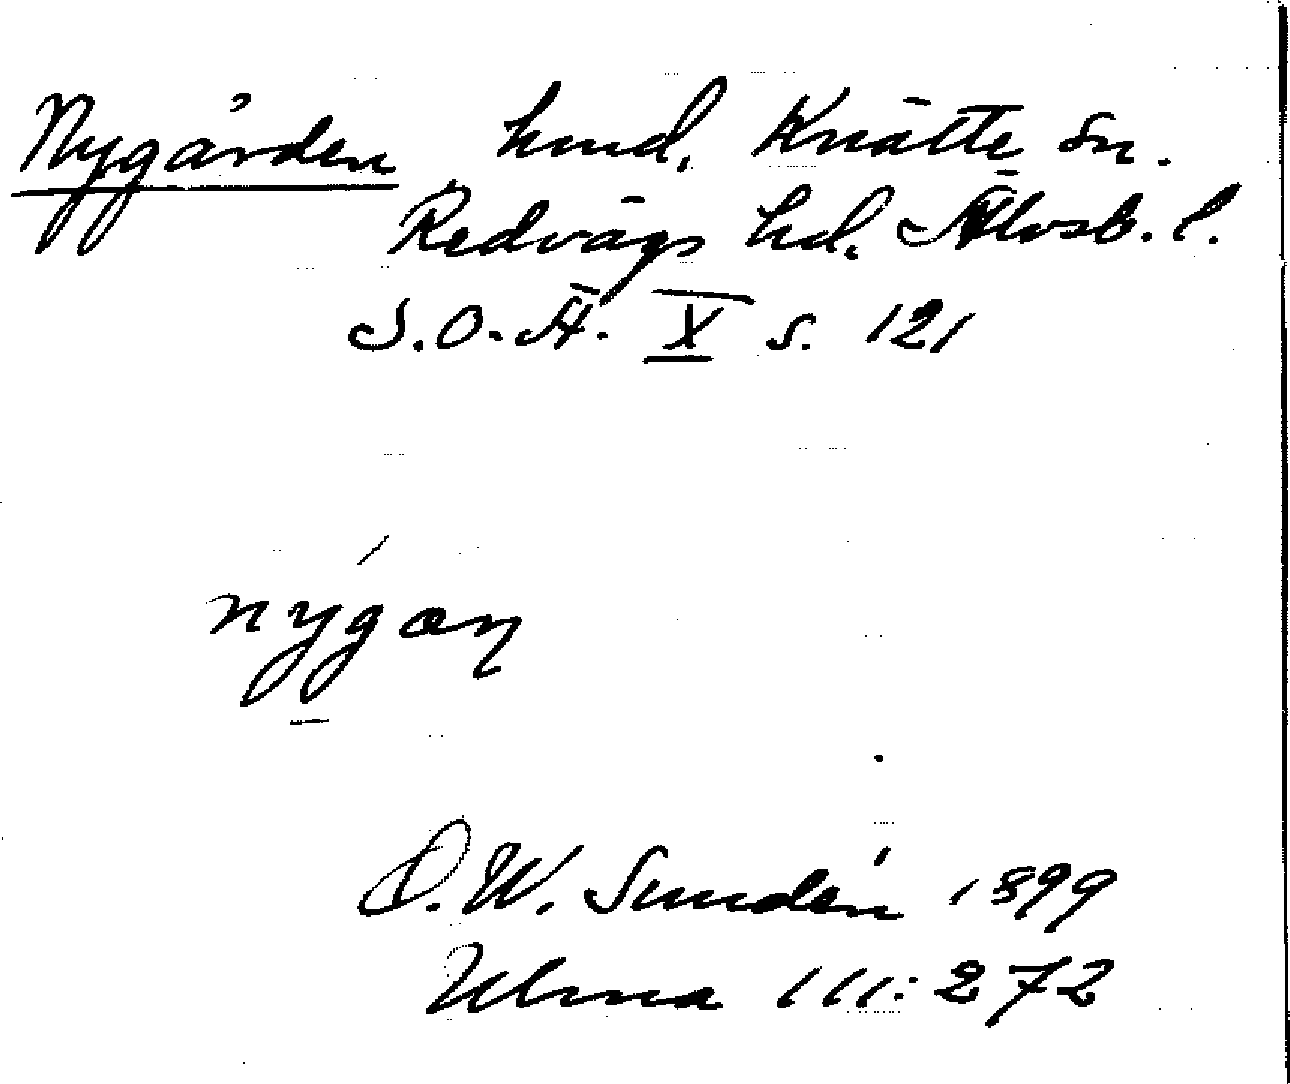 Nygården hmd. Knätte sn.
Redvägs hd. Älvsb. l.
S.O.Ä. X s. 121
nýgaŋ
D.W. Sundén 1899
Ulma 111:272